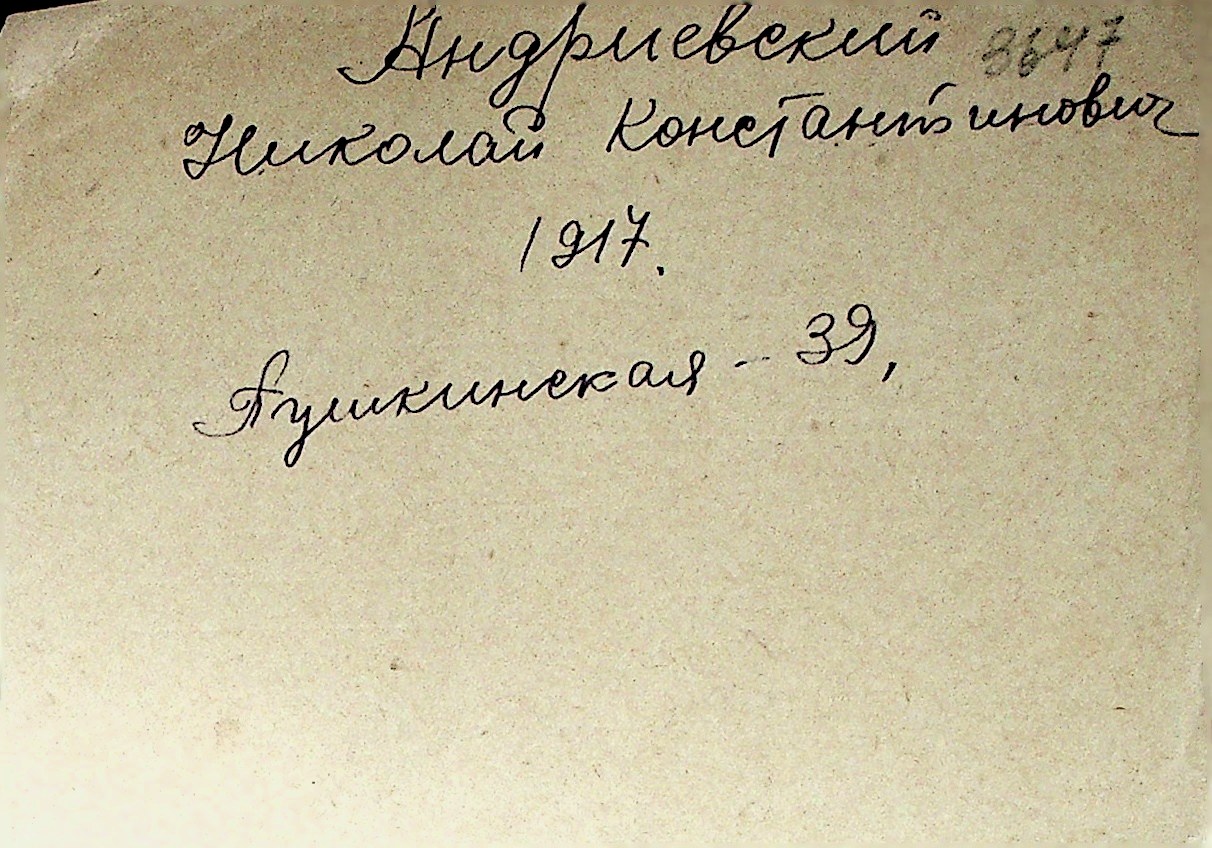 Андриевский 3647
Николай Константинович
1917.
Пушкинская - 39,